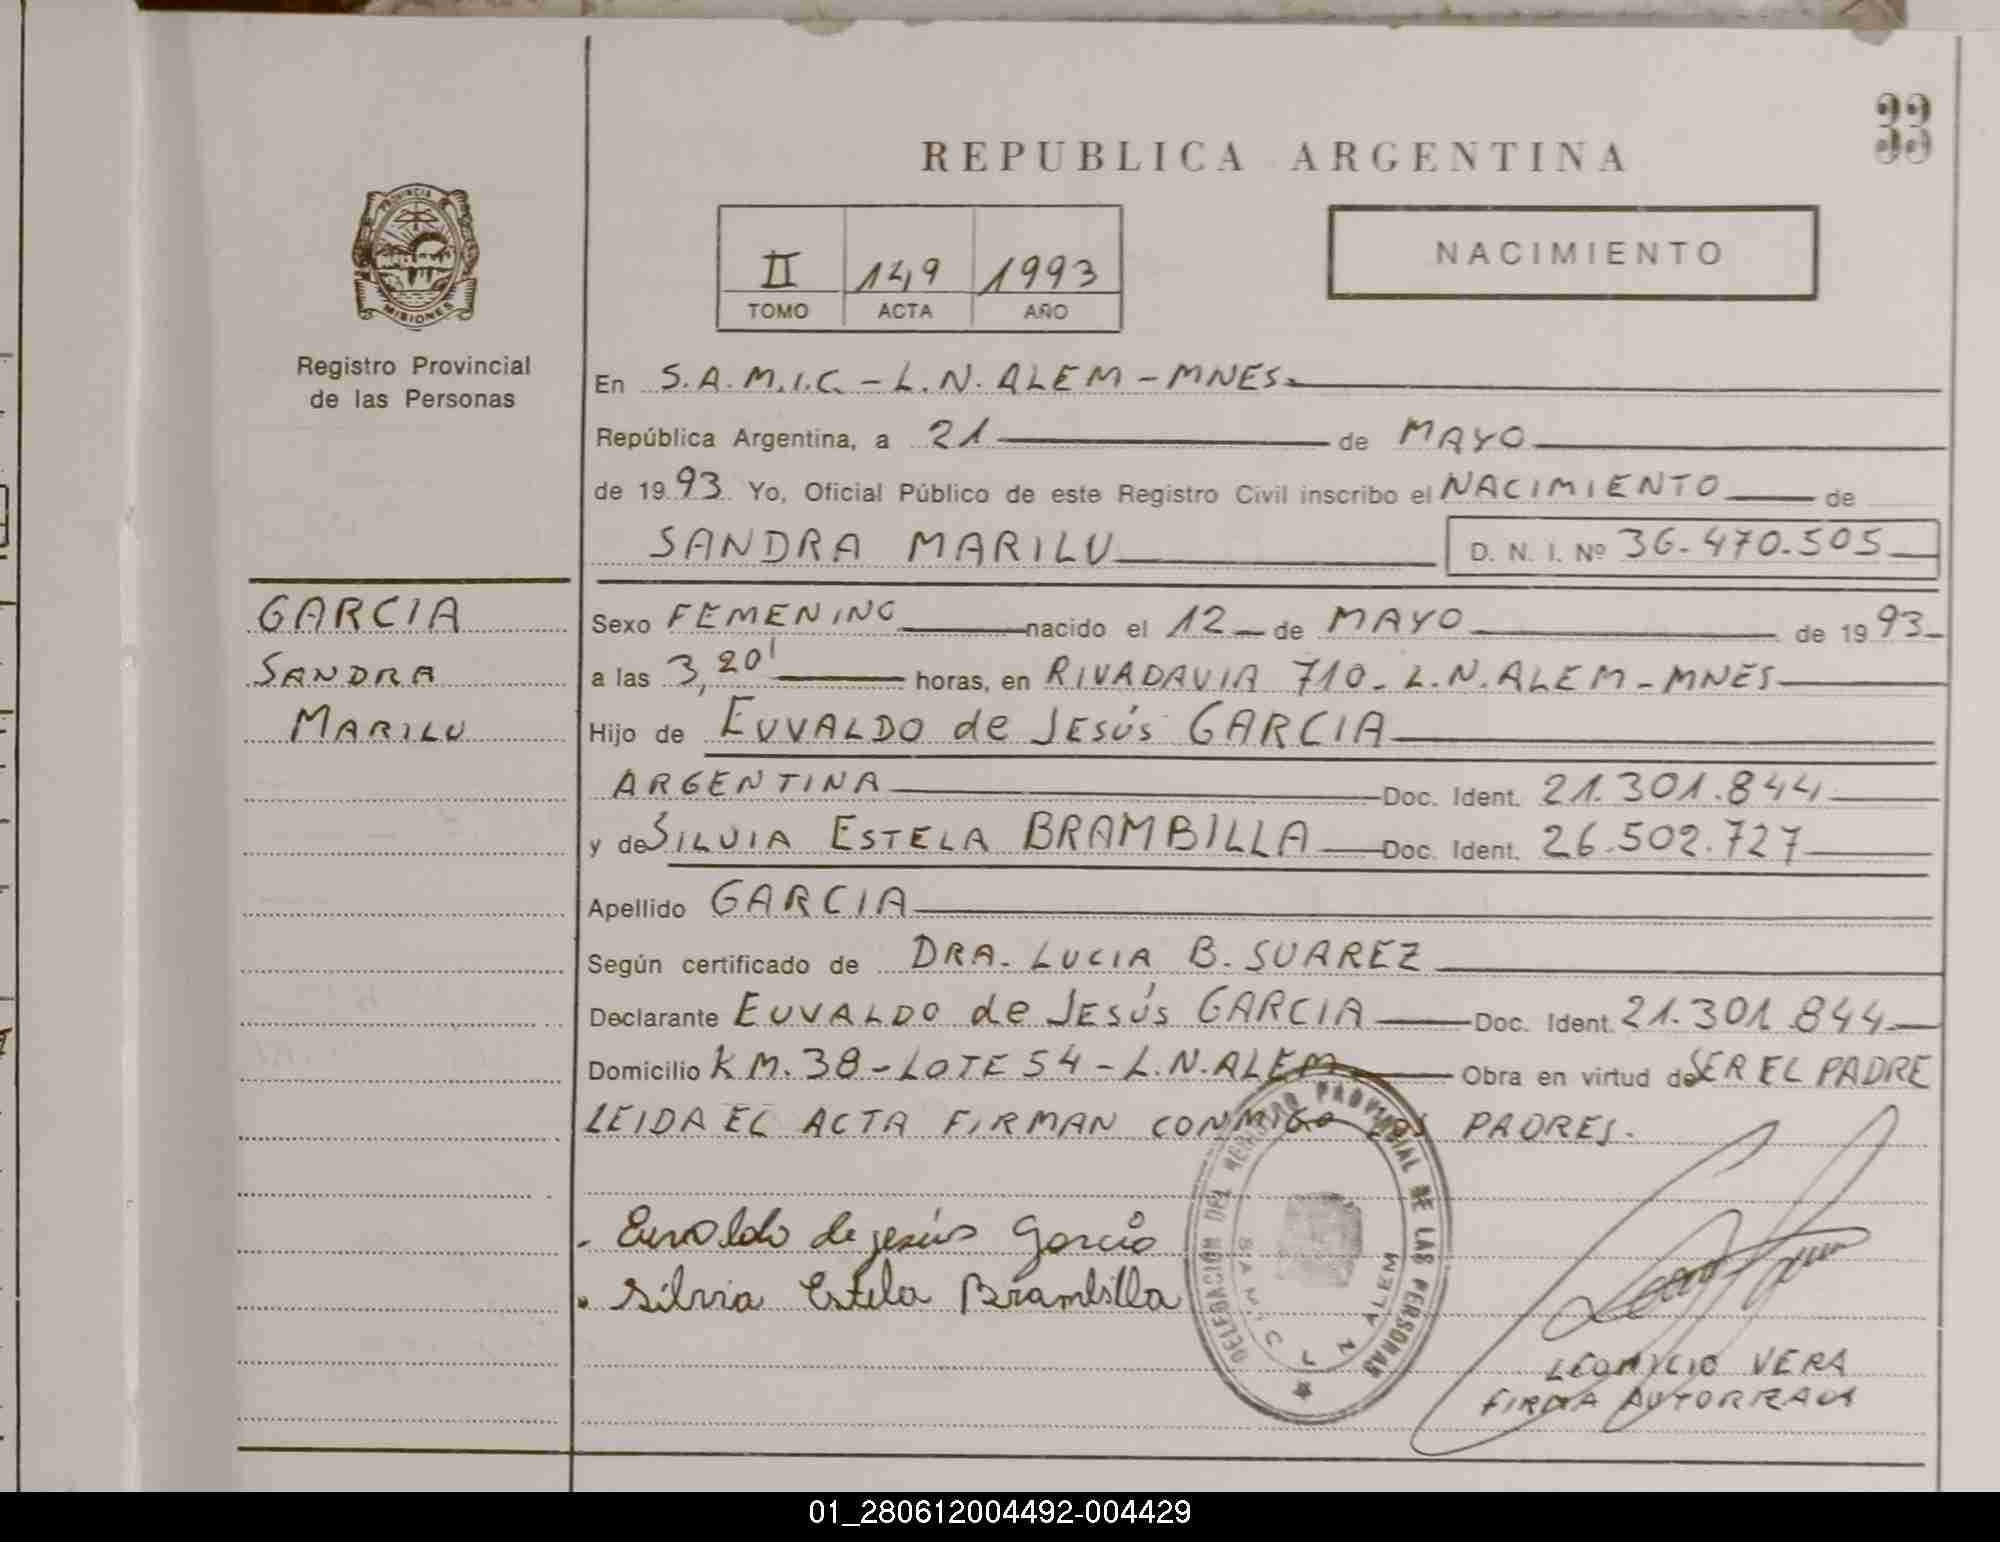 33
REPUBLICA ARGENTINA
PROVINCIA DE
MISIONES
Registro Provincial
de las Personas
II 149 1993
TOMO ACTA AÑO
NACIMIENTO
En S.A.M.I.C. - L.N. ALEM - MNES.
República Argentina, a 21 de MAYO
de 1993 Yo, Oficial Público de este Registro Civil inscribo el NACIMIENTO de
SANDRA MARILU D. N. I. Nº 36.470.505
GARCIA
SANDRA
MARILU
Sexo FEMENINO nacido el 12 de MAYO de 1993
a las 3,20' horas, en RIVADAVIA 710 - L.N. ALEM - MNES
Hijo de EUVALDO de JESÚS GARCIA
ARGENTINA Doc. Ident. 21.301.844
y de SILVIA ESTELA BRAMBILLA Doc. Ident. 26.502.727
Apellido GARCIA
Según certificado de DRA. LUCIA B. SUAREZ
Declarante EUVALDO de JESÚS GARCIA Doc. Ident. 21.301.844
Domicilio KM. 38 - LOTE 54 - L.N. ALEM Obra en virtud de SER EL PADRE
LEIDA EL ACTA FIRMAN CONMIGO LOS PADRES.
Euvaldo de jesús Garcia
Silvia Estela Brambilla
DELEGACIÓN DEL REGISTRO PROVINCIAL DE LAS PERSONAS
L N ALEM
LEONICIO VERA
FIRMA AUTORIZADA
01_280612004492-004429